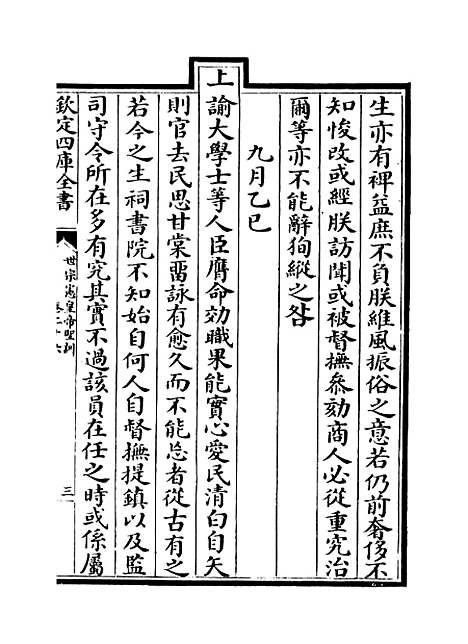 生亦有裨益庶不負朕維風振俗之意若仍前奢侈不
知悛改或經朕訪聞或被督撫叅劾商人必從重究治
爾等亦不能辭狥縱之咎
九月乙巳
上諭大學士等人臣膺命効職果能實心愛民清白自矢
則官去民思甘棠畱詠有愈久而不能忘者從古有之
若今之生祠書院不知始自何人自督撫提鎮以及監
司守令所在多有究其實不過該員在任之時或係屬
欽定四庫全書
世宗憲皇帝聖訓
卷二十六
三